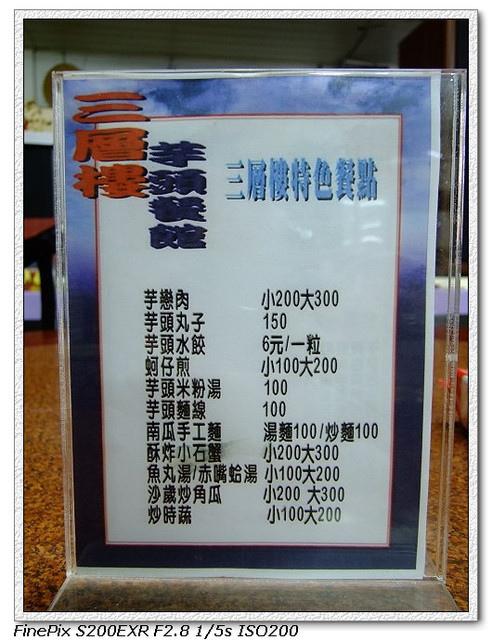 三層樓
芋頭餐館
三層樓特色餐點
芋戀肉 小200大300
芋頭丸子 150
芋頭水餃 6元/一粒
蚵仔煎 小100大200
芋頭米粉湯 100
芋頭麵線 100
南瓜手工麵 湯麵100/炒麵100
酥炸小石蟹 小200大300
魚丸湯/赤嘴蛤湯 小100大200
沙歲炒角瓜 小200 大300
炒時蔬 小100大200
FinePix S200EXR F2.8 1/5s ISO200